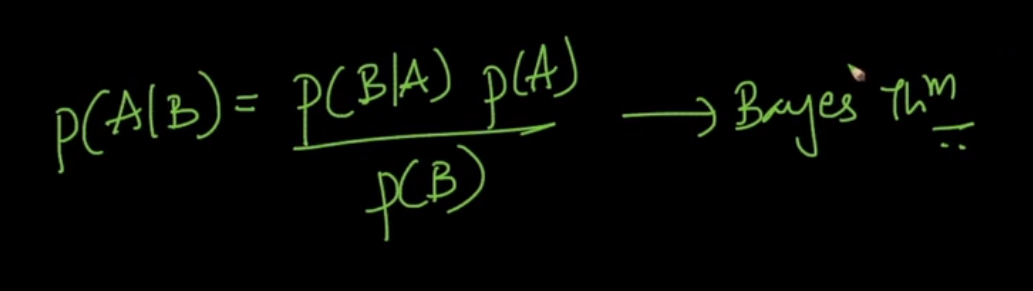 p(A|B) = p(B|A) p(A) / p(B) → Bayes' Thm